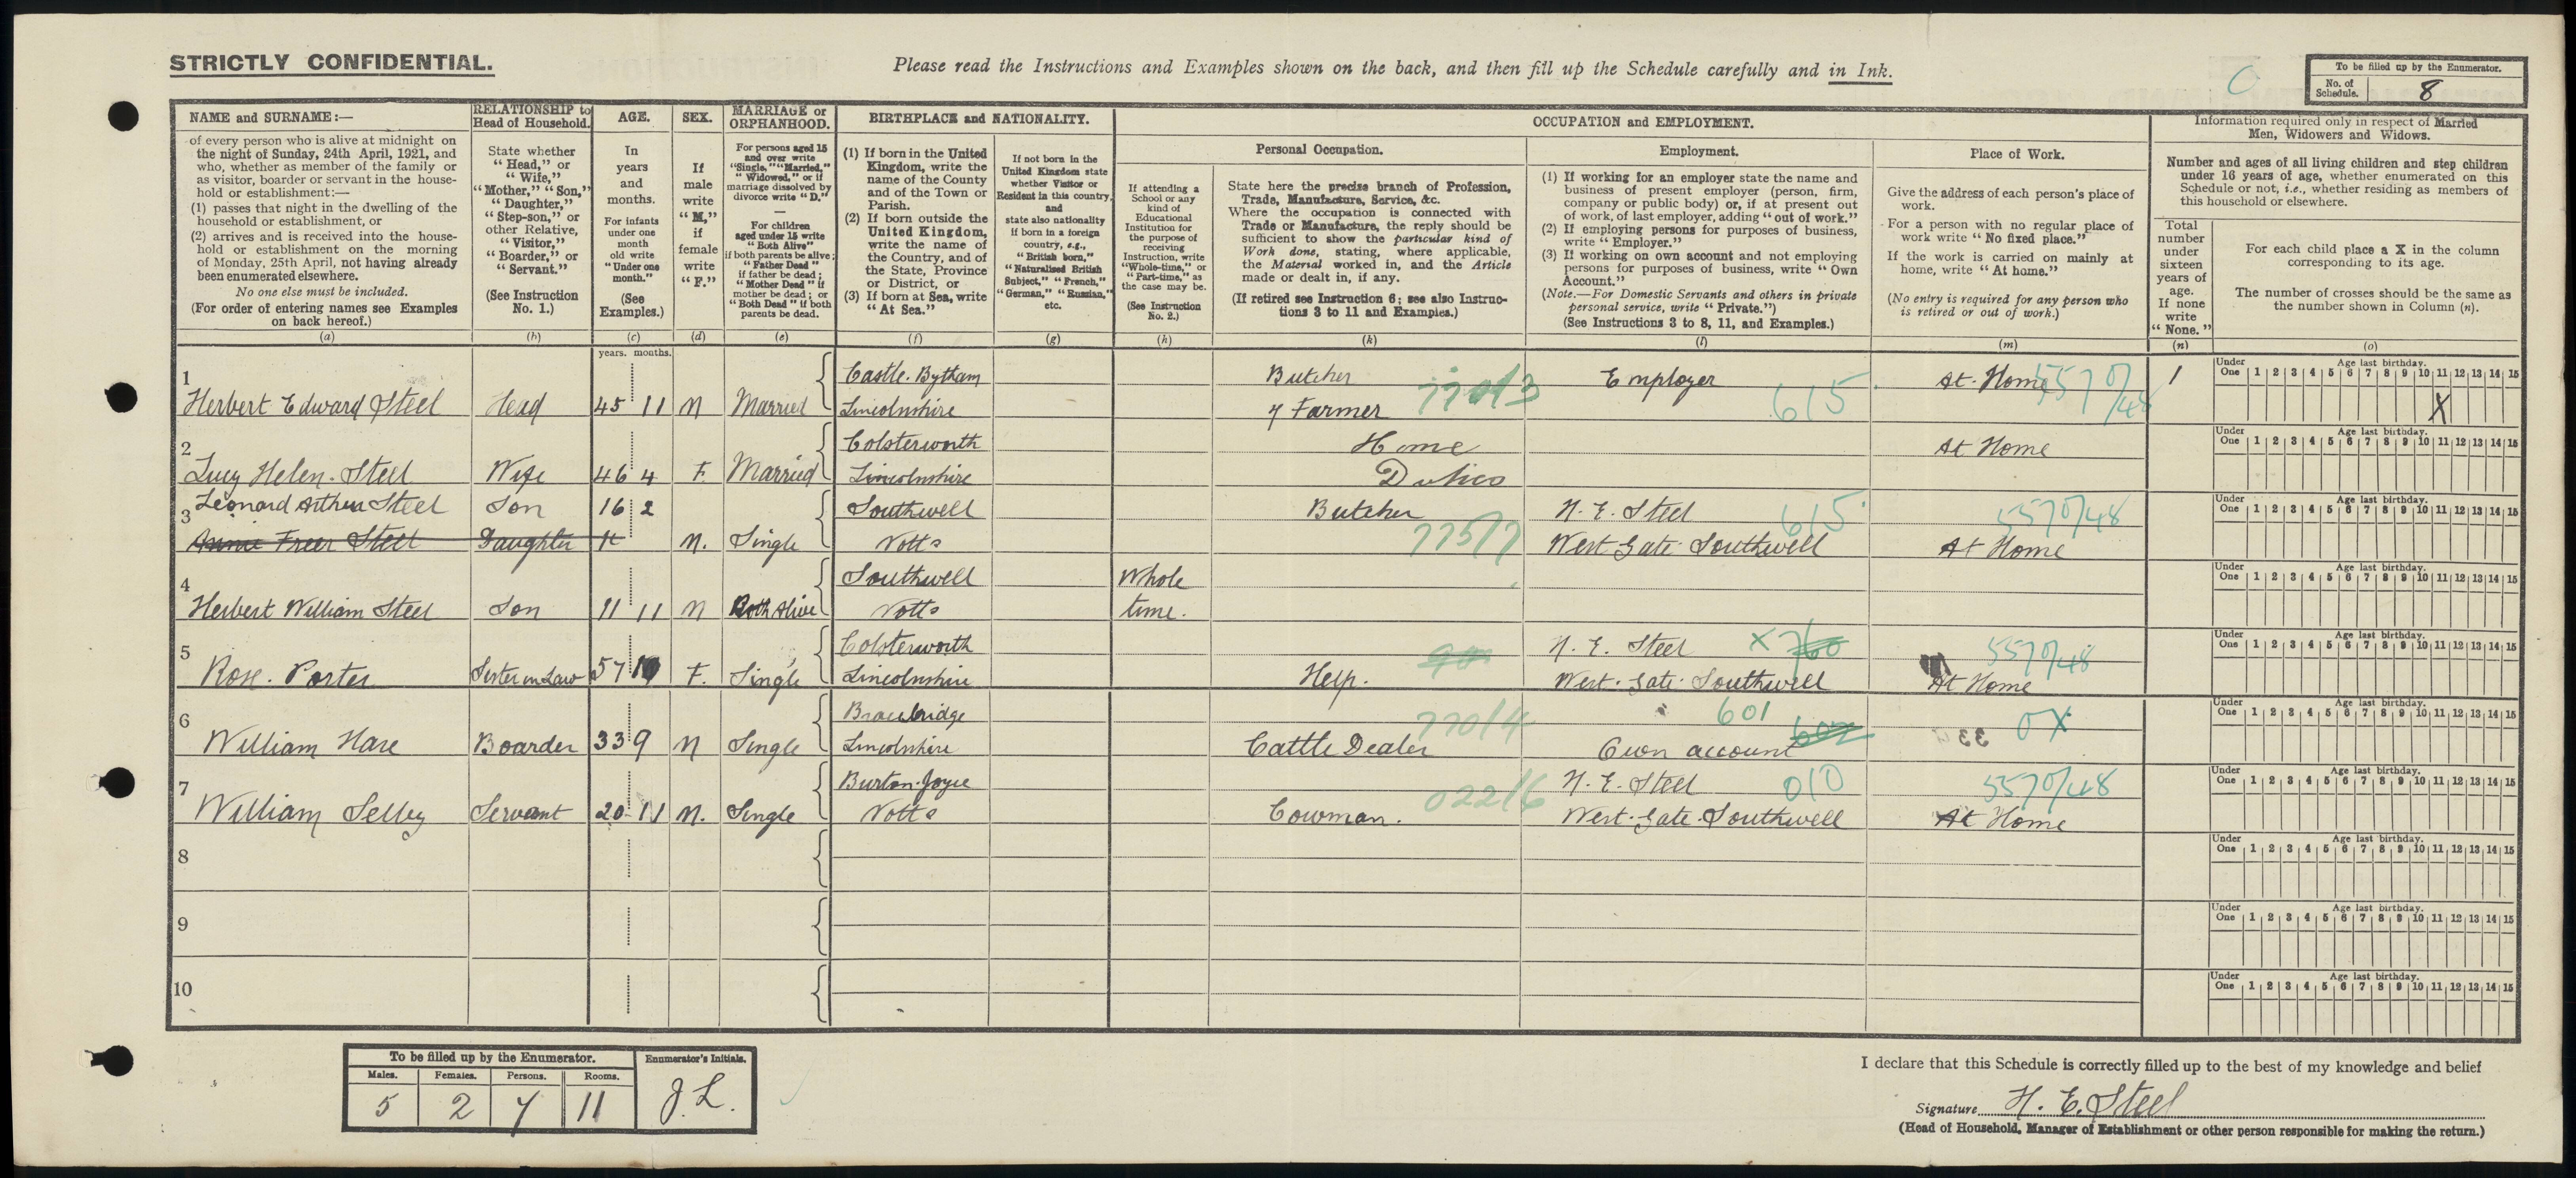 STRICTLY CONFIDENTIAL.
Please read the Instructions and Examples shown on the back, and then fill up the Schedule carefully and in Ink.
To be filled up by the Enumerator.
No. of Schedule. 8
NAME and SURNAME:—
of every person who is alive at midnight on
the night of Sunday, 24th April, 1921, and
who, whether as member of the family or
as visitor, boarder or servant in the house-
hold or establishment:—
(1) passes that night in the dwelling of the
household or establishment, or
(2) arrives and is received into the house-
hold or establishment on the morning
of Monday, 25th April, not having already
been enumerated elsewhere.
No one else must be included.
(For order of entering names see Examples
on back hereof.)
(a)
RELATIONSHIP to
Head of Household.
State whether
"Head," or
"Wife,"
"Mother," "Son,"
"Daughter,"
"Step-son," or
other Relative,
"Visitor,"
"Boarder," or
"Servant."
(See Instruction
No. 1.)
(b)
AGE.
In
years
and
months.
For infants
under one
month
old write
"Under one
month."
(See
Examples.)
(c)
years. months.
SEX.
If
male
write
"M,"
if
female
write
"F."
(d)
MARRIAGE or
ORPHANHOOD.
For persons aged 15
and over write
"Single," "Married,"
"Widowed," or if
marriage dissolved by
divorce write "D."
—
For children
aged under 15 write
"Both Alive"
if both parents be alive;
"Father Dead"
if father be dead;
"Mother Dead" if
mother be dead; or
"Both Dead" if both
parents be dead.
(e)
BIRTHPLACE and NATIONALITY.
(1) If born in the United
Kingdom, write the
name of the County
and of the Town or
Parish.
(2) If born outside the
United Kingdom,
write the name of
the Country, and of
the State, Province
or District, or
(3) If born at Sea, write
"At Sea."
(f)
If not born in the
United Kingdom state
whether Visitor or
Resident in this country,
and
state also nationality
if born in a foreign
country, e.g.,
"British born,"
"Naturalised British
Subject," "French,"
"German," "Russian,"
etc.
(g)
OCCUPATION and EMPLOYMENT.
If attending a
School or any
kind of
Educational
Institution for
the purpose of
receiving
Instruction, write
"Whole-time," or
"Part-time," as
the case may be.
(See Instruction
No. 2.)
(h)
Personal Occupation.
State here the precise branch of Profession,
Trade, Manufacture, Service, &c.
Where the occupation is connected with
Trade or Manufacture, the reply should be
sufficient to show the particular kind of
Work done, stating, where applicable,
the Material worked in, and the Article
made or dealt in, if any.
(If retired see Instruction 6; see also Instruc-
tions 3 to 11 and Examples.)
(k)
Employment.
(1) If working for an employer state the name and
business of present employer (person, firm,
company or public body) or, if at present out
of work, of last employer, adding "out of work."
(2) If employing persons for purposes of business,
write "Employer."
(3) If working on own account and not employing
persons for purposes of business, write "Own
Account."
(Note.—For Domestic Servants and others in private
personal service, write "Private.")
(See Instructions 3 to 8, 11, and Examples.)
(l)
Place of Work.
Give the address of each person's place of
work.
For a person with no regular place of
work write "No fixed place."
If the work is carried on mainly at
home, write "At home."
(No entry is required for any person who
is retired or out of work.)
(m)
Information required only in respect of Married
Men, Widowers and Widows.
Number and ages of all living children and step children
under 16 years of age, whether enumerated on this
Schedule or not, i.e., whether residing as members of
this household or elsewhere.
Total
number
under
sixteen
years of
age.
If none
write
"None."
(n)
For each child place a X in the column
corresponding to its age.
The number of crosses should be the same as
the number shown in Column (n).
(o)
1 Herbert Edward Steel Head 45 11 M Married Castle Bytham Lincolnshire Butcher & Farmer 770/3 Employer 615 At Home 5570/48 1
Under One 1 2 3 4 5 6 7 8 9 10 11 12 13 14 15 Age last birthday. X
2 Lucy Helen Steel Wife 46 4 F. Married Colsterworth Lincolnshire Home Duties At Home
Under One 1 2 3 4 5 6 7 8 9 10 11 12 13 14 15 Age last birthday.
3 Leonard Arthur Steel Son 16 2 Southwell Butcher H. E. Steel 615 5570/48
Annie Freer Steel Daughter M. Single Notts 775/7 West Gate Southwell At Home
Under One 1 2 3 4 5 6 7 8 9 10 11 12 13 14 15 Age last birthday.
4 Herbert William Steel Son 11 11 M Both Alive Southwell Notts Whole time.
Under One 1 2 3 4 5 6 7 8 9 10 11 12 13 14 15 Age last birthday.
5 Rose. Porter Sister in Law 57 10 F. Single Colsterworth Lincolnshire Help. H. E. Steel X 760 West Gate Southwell 5570/48 At Home
Under One 1 2 3 4 5 6 7 8 9 10 11 12 13 14 15 Age last birthday.
6 William Hare Boarder 33 9 M Single Lincolnshire Cattle Dealer 770/4 601 Own account 0X
Under One 1 2 3 4 5 6 7 8 9 10 11 12 13 14 15 Age last birthday.
7 William Selby Servant 20 11 M. Single Burton Joyce Notts Cowman. 022/6 H. E. Steel 010 West Gate Southwell 5570/48 At Home
Under One 1 2 3 4 5 6 7 8 9 10 11 12 13 14 15 Age last birthday.
8
Under One 1 2 3 4 5 6 7 8 9 10 11 12 13 14 15 Age last birthday.
9
Under One 1 2 3 4 5 6 7 8 9 10 11 12 13 14 15 Age last birthday.
10
Under One 1 2 3 4 5 6 7 8 9 10 11 12 13 14 15 Age last birthday.
To be filled up by the Enumerator.
Males. Females. Persons. Rooms.
5 2 7 11
Enumerator's Initials.
J. L.
I declare that this Schedule is correctly filled up to the best of my knowledge and belief
Signature H. E. Steel
(Head of Household, Manager of Establishment or other person responsible for making the return.)